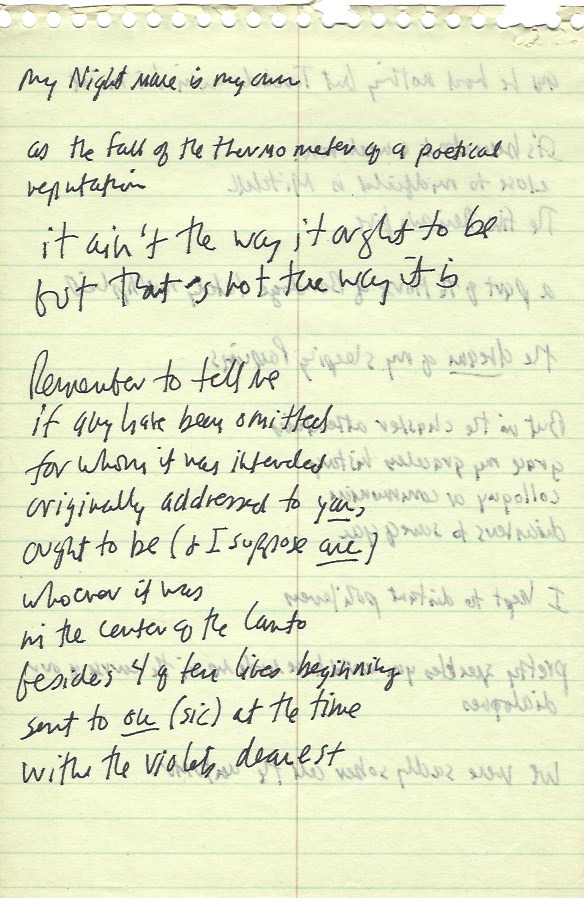 My Nightmare is my own
as the fall of the thermometer of a poetical
reputation
it ain't the way it ought to be
but that's not the way it is
Remember to tell me
if any have been omitted
for whom it was intended
originally addressed to you,
ought to be (& I suppose are)
whoever it was
in the center of the Canto
besides 4 of ten lives beginning
sent to ou (sic) at the time
with the violets dearest